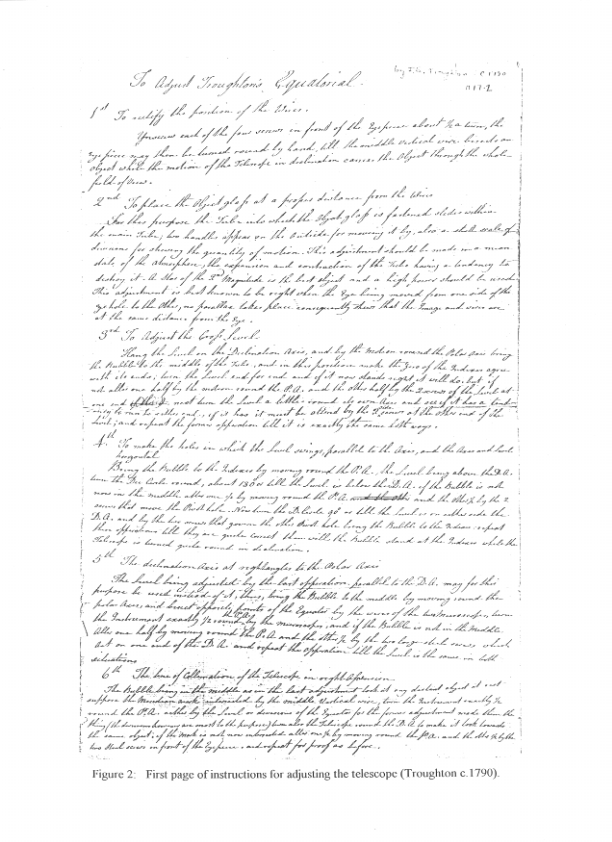 To Adjust Troughton's Equatorial.
by Troughton c 1790
1st To rectify the position of the Wires.
Unscrew each of the four screws in front of the Eyepiece about ½ a turn, the
eye piece may then be turned round by hand, till the middle vertical wire bisects an
object while the motion of the Telescope in declination causes the Object through the whole
field of View.
2nd To place the Object glass at a proper distance from the Wires
For this purpose the Tube into which the Object glass is fastened slides within
the main Tube, two handles appear on the outside, for moving it by, also a small scale of
divisions for shewing the quantity of motion. This adjustment should be made in a mean
state of the Atmosphere, the expansion and contraction of the Tube having a tendency to
destroy it. A Star of the 2nd Magnitude is the best object and a high power should be used
This adjustment is best known to be right when the Eye being moved from one side of the
eye hole to the Other, no parallax takes place consequently shews that the Image and wires are
at the same distance from the Eye.
3rd To Adjust the Cross Level.
Hang the Level on the Declination Axis, and by the Motion round the Polar Axis bring
the Bubble to the middle of the Tube, and in this position make the Zero of the Indexes agree
with its ends, turn the Level end for end and if it now stands right it will do, but if
not alter one half by the motion round the P.A. and the other half by the 2 screws of the Level at
one end next turn the Level a little round its own Axis and see if it has a tend-
ency to run to either end, if it has it must be altered by the 2 screws at the other end of the
Level, and repeat the former opperation till it is exactly the same both ways.
4th To make the holes in which the Level swings, parallel to the Axis, and the Axis and Level
horizontal
Bring the Bubble to the Indexes by moving round the P.A. The Level being above the D.A.
turn the Dec Circle round, about 180° till the Level is below the D.A. if the Bubble is not
now in the middle, alter one ½ by moving round the P.A. and the other ½ by the 2
screws that move the Pivot hole. Now turn the D. Circle 90° or till the Level is on either side the
D.A. and by the two screws that govern the other Pivot hole bring the Bubble to the Indexes repeat
these opperations till they are quite correct then will the Bubble stand at the Indexes while the
Telescope is turned quite round in declination.
5th The declination Axis at right angles to the Polar Axis
The Level being adjusted by the last opperation parallel to the D.A. may for this
purpose be used instead of it, thus, bring the Bubble to the middle by moving round the
Polar Axis, and bisect opposite points of the Equator by the wires of the two Microscopes, turn
the Instrument exactly ½ round by the microscopes, and if the Bubble is not in the Middle
Alter one half by moving round the P.A. and the other ½ by the two large steel screws which
Act on one end of the D.A. and repeat the opperation till the Level is the same in both
situations
6th The line of Collimation of the Telescope in right Ascension
The Bubble being in the middle as in the last adjustment look at any distant object
suppose the Meridian mark intersected by the middle Vertical wire, turn the Instrument exactly ½
round the P.A. either by the Level or divisions of the Equator for the former adjustment made them the same
thing (the divisions however are most to the purpose) turn also the Telescope round the D.A. to make it look towards
the same object, if the Mark is not now intersected alter one ½ by moving round the P.A. and the other ½ by the
two steel screws in front of the Eyepiece and repeat for proof as before.
Figure 2: First page of instructions for adjusting the telescope (Troughton c.1790).